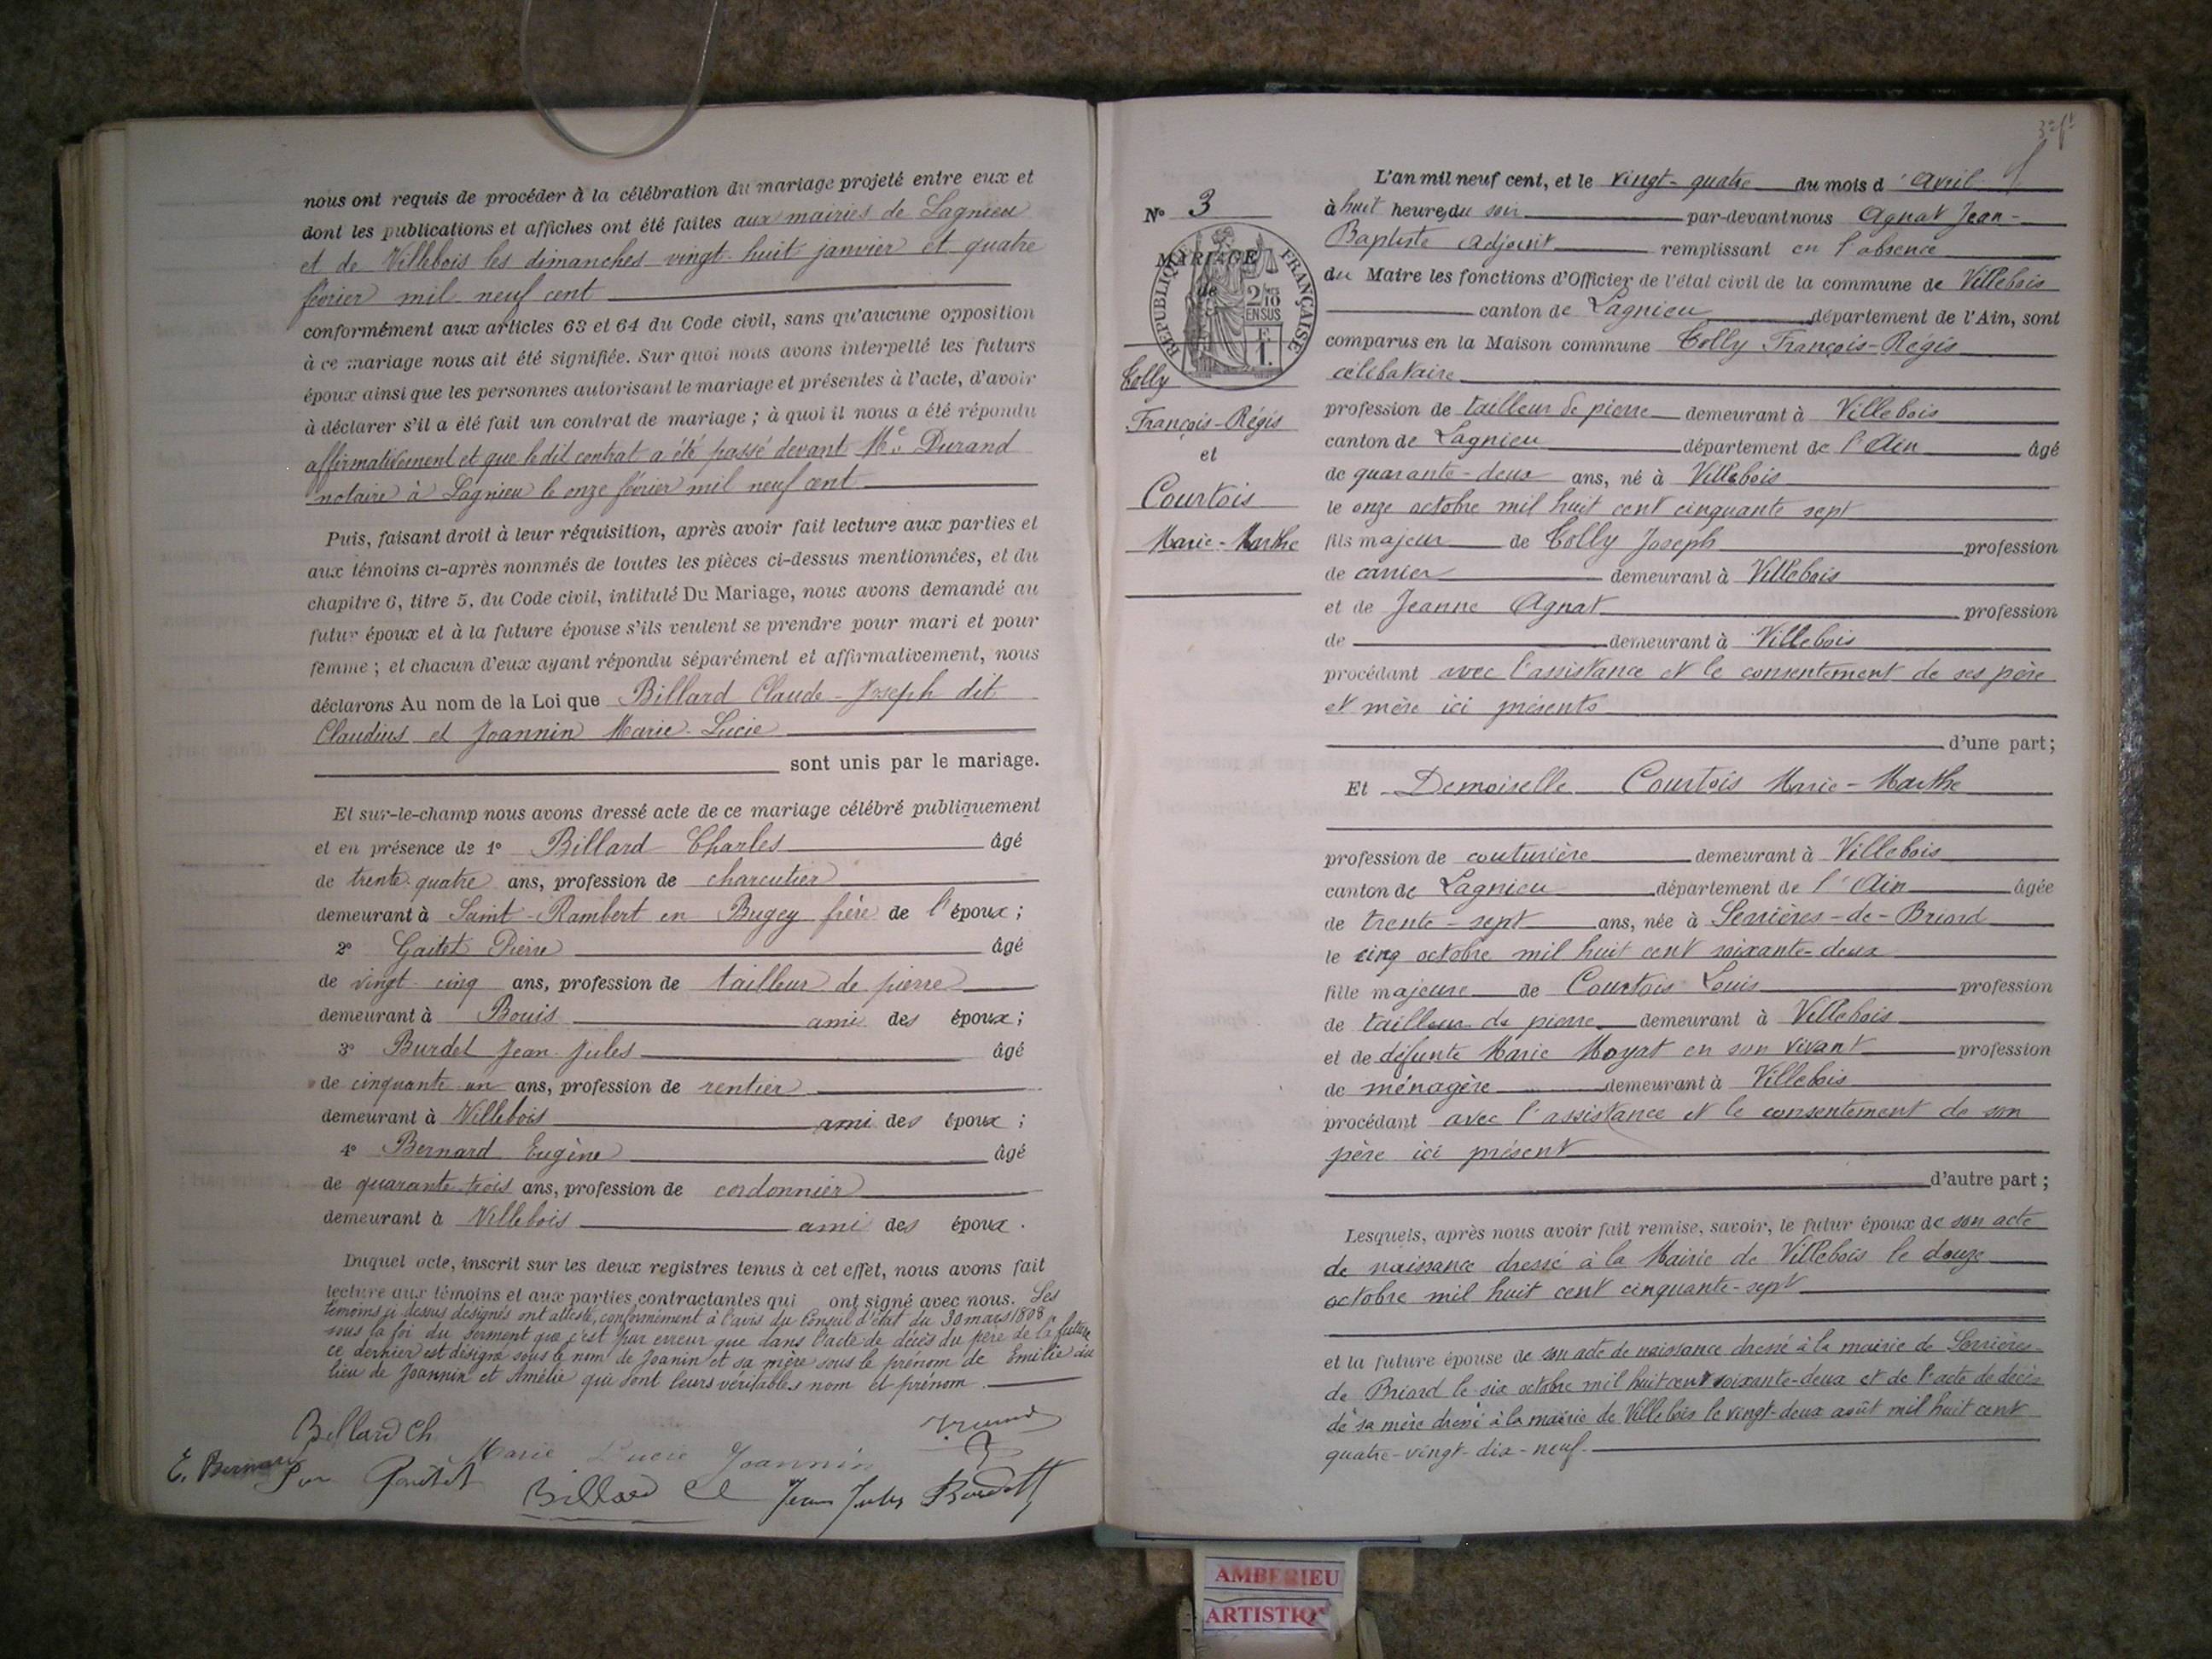 nous ont requis de procéder à la célébration du mariage projeté entre eux et
dont les publications et affiches ont été faites aux mairies de Lagnieu
et de Villebois les dimanches vingt-huit janvier et quatre
février mil neuf cent
conformément aux articles 63 et 64 du Code civil, sans qu'aucune opposition
à ce mariage nous ait été signifiée. Sur quoi nous avons interpellé les futurs
époux ainsi que les personnes autorisant le mariage et présentes à l'acte, d'avoir
à déclarer s'il a été fait un contrat de mariage ; à quoi il nous a été répondu
affirmativement et que ledit contrat a été passé devant Me. Durand
notaire à Lagnieu le onze février mil neuf cent
Puis, faisant droit à leur réquisition, après avoir fait lecture aux parties et
aux témoins ci-après nommés de toutes les pièces ci-dessus mentionnées, et du
chapitre 6, titre 5, du Code civil, intitulé Du Mariage, nous avons demandé au
futur époux et à la future épouse s'ils veulent se prendre pour mari et pour
femme ; et chacun d'eux ayant répondu séparément et affirmativement, nous
déclarons Au nom de la Loi que Billard Claude-Joseph dit
Claudius et Joannin Marie-Lucie
sont unis par le mariage.
Et sur-le-champ nous avons dressé acte de ce mariage célébré publiquement
et en présence de 1° Billard Charles âgé
de trente-quatre ans, profession de charcutier
demeurant à Saint-Rambert en Bugey frère de l'époux ;
2° Gaitet Pierre âgé
de vingt-cinq ans, profession de tailleur de pierre
demeurant à Bouis ami des époux ;
3° Burdet Jean-Jules âgé
de cinquante un ans, profession de rentier
demeurant à Villebois ami des époux ;
4° Bernard Eugène âgé
de quarante-trois ans, profession de cordonnier
demeurant à Villebois ami des époux .
Duquel acte, inscrit sur les deux registres tenus à cet effet, nous avons fait
lecture aux témoins et aux parties contractantes qui ont signé avec nous. Les
témoins ci dessus désignés ont attesté, conformément à l'avis du Conseil d'état du 30 mars 1808,
sous la foi du serment que c'est par erreur que dans l'acte de décès du père de la future
ce dernier est désigné sous le nom de Joanin et sa mère sous le prénom de Emilie au
lieu de Joannin et Amélie qui sont leurs véritables nom et prénom.
Billard Ch
E. Bernard
Marie Lucie Joannin
Billard Cl
Jean Jules Burdett
N° 3
MARIAGE
de
RÉPUBLIQUE FRANÇAISE
2/10
EN SUS
Colly
François-Régis
et
Courtois
Marie-Marthe
L'an mil neuf cent, et le vingt-quatre du mois d'Avril
à huit heures du soir par-devant nous Agnat Jean-
Baptiste adjoint remplissant en l'absence
du Maire les fonctions d'Officier de l'état civil de la commune de Villebois
canton de Lagnieu département de l'Ain, sont
comparus en la Maison commune Colly François-Régis
célibataire
profession de tailleur de pierre demeurant à Villebois
canton de Lagnieu département de l'Ain âgé
de quarante-deux ans, né à Villebois
le onze octobre mil huit cent cinquante sept
fils majeur de Colly Joseph profession
de carrier demeurant à Villebois
et de Jeanne Agnat profession
de demeurant à Villebois
procédant avec l'assistance et le consentement de ses père
et mère ici présents
d'une part ;
Et Demoiselle Courtois Marie-Marthe
profession de couturière demeurant à Villebois
canton de Lagnieu département de l'Ain âgée
de trente-sept ans, née à Serrières-de-Briord
le cinq octobre mil huit cent soixante-deux
fille majeure de Courtois Louis profession
de tailleur de pierre demeurant à Villebois
et de défunte Marie Moyat en son vivant profession
de ménagère demeurant à Villebois
procédant avec l'assistance et le consentement de son
père ici présent
d'autre part ;
Lesquels, après nous avoir fait remise, savoir, le futur époux de son acte
de naissance dressé à la Mairie de Villebois le douze
octobre mil huit cent cinquante-sept
et la future épouse de son acte de naissance dressé à la mairie de Serrières-
de Briord le six octobre mil huit cent soixante-deux et de l'acte de décès
de sa mère dressé à la mairie de Villebois le vingt-deux août mil huit cent
quatre-vingt-dix-neuf.
AMBERIEU
ARTISTIQ